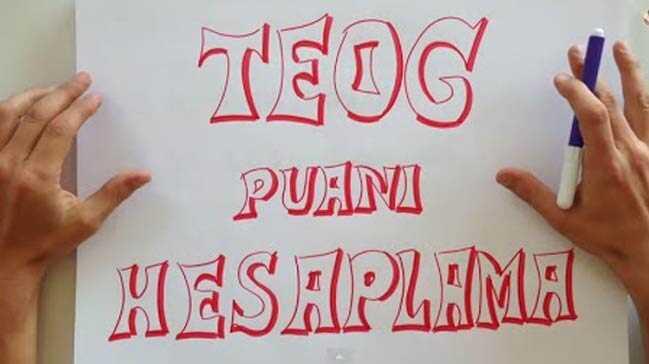 TEOG
PUANI
HESAPLAMA